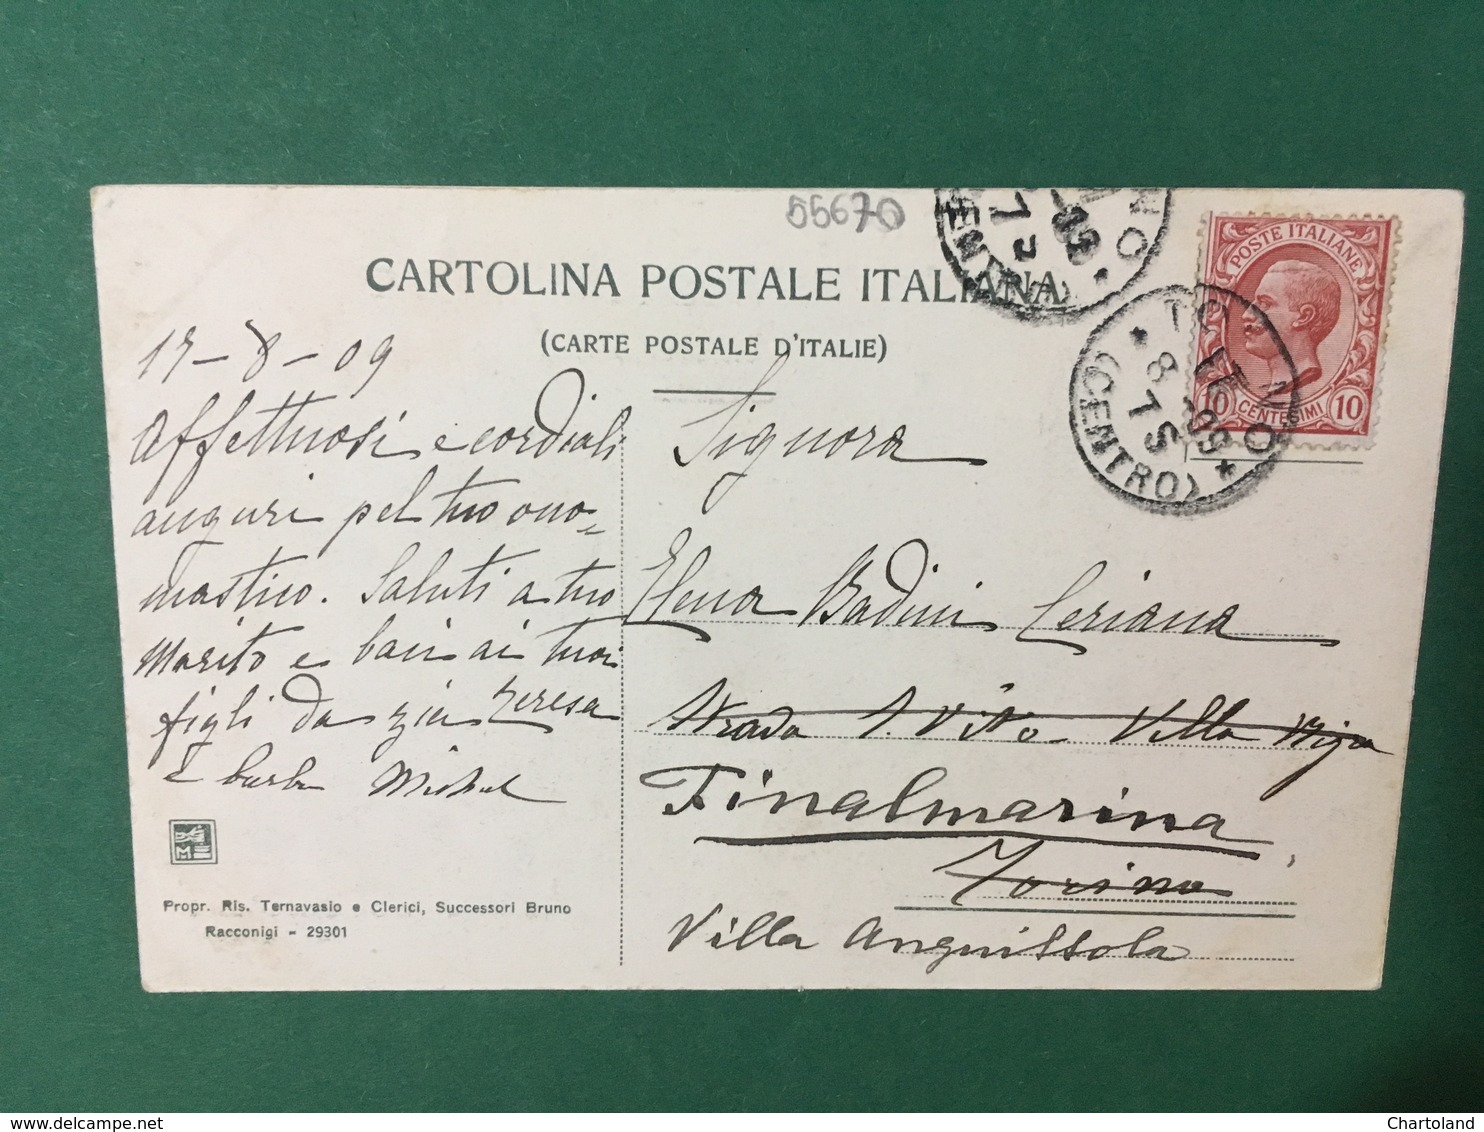 55670
CARTOLINA POSTALE ITALIANA
(CARTE POSTALE D'ITALIE)
POSTE ITALIANE
10 CENTESIMI 10
TORINO
(CENTRO)
17-8-09
Affettuosi e cordiali
auguri pel tuo ono=
mastico. Saluti a tuo
marito e baci ai tuoi
figli da zia Teresa
e barba Michel
Signora
Elena Badini Ceriana
Strada S. Vito - Villa
Finalmarina
Torino
Villa Anguissola
M
Propr. Ris. Ternavasio e Clerici, Successori Bruno
Racconigi - 29301
delcampe.net
Chartoland